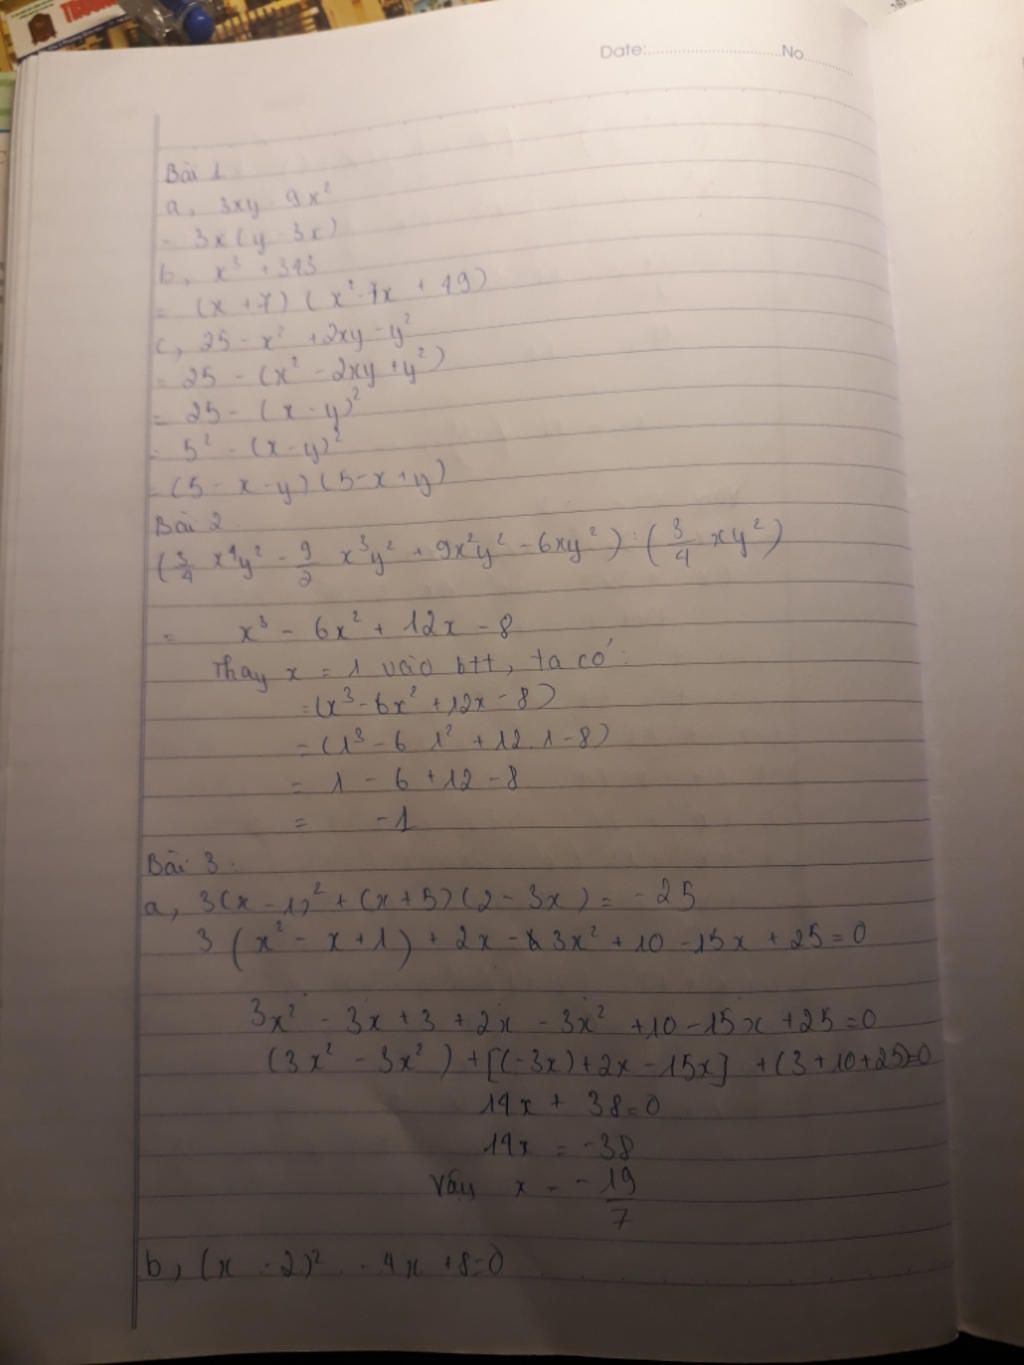 Date:..............................No............
Bài 1
a, 3xy - 9x²
= 3x(y - 3x)
b, x³ + 343
= (x + 7) (x² - 7x + 49)
c, 25 - x² + 2xy - y²
= 25 - (x² - 2xy + y²)
= 25 - (x - y)²
= 5² - (x - y)²
= (5 - x - y)(5 - x + y)
Bài 2
(3/4 x⁴y² - 9/2 x³y² + 9x²y² - 6xy²) : (3/4 xy²)
= x³ - 6x² + 12x - 8
Thay x = 1 vào btt, ta có:
= (x³ - 6x² + 12x - 8)
= (1³ - 6 1² + 12.1 - 8)
= 1 - 6 + 12 - 8
= -1
Bài 3:
a, 3(x - 1)² + (x + 5)(2 - 3x) = -25
3(x² - x + 1) + 2x - 3x² + 10 - 15x + 25 = 0
3x² - 3x + 3 + 2x - 3x² + 10 - 15x + 25 = 0
(3x² - 3x²) + [(-3x) + 2x - 15x] + (3 + 10 + 25) = 0
14x + 38 = 0
14x = -38
Vậy x = -19/7
b, (x - 2)² - 4x + 8 = 0